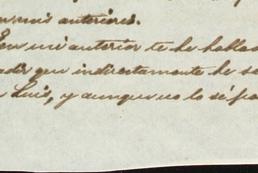 en mis anteriores.
En mi anterior te he hablad
adir que indirectamente he sa
Luis, y aunque no lo sé po